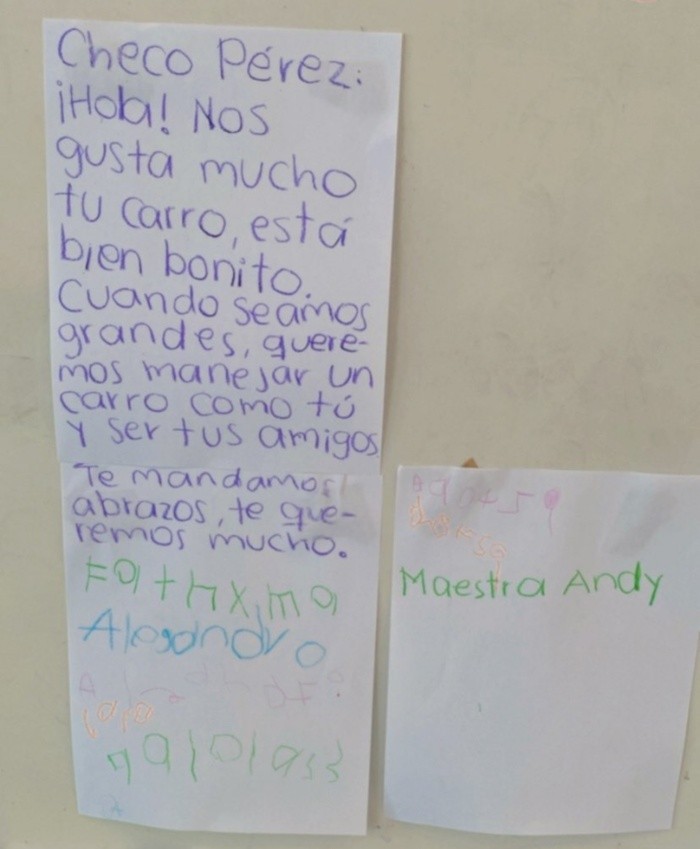 Checo Pérez:
¡Hola! Nos
gusta mucho
tu carro, está
bien bonito.
Cuando seamos
grandes, quere-
mos manejar un
carro como tú
y ser tus amigos
Te mandamos
abrazos, te que-
remos mucho.
Alejandro
Maestra Andy